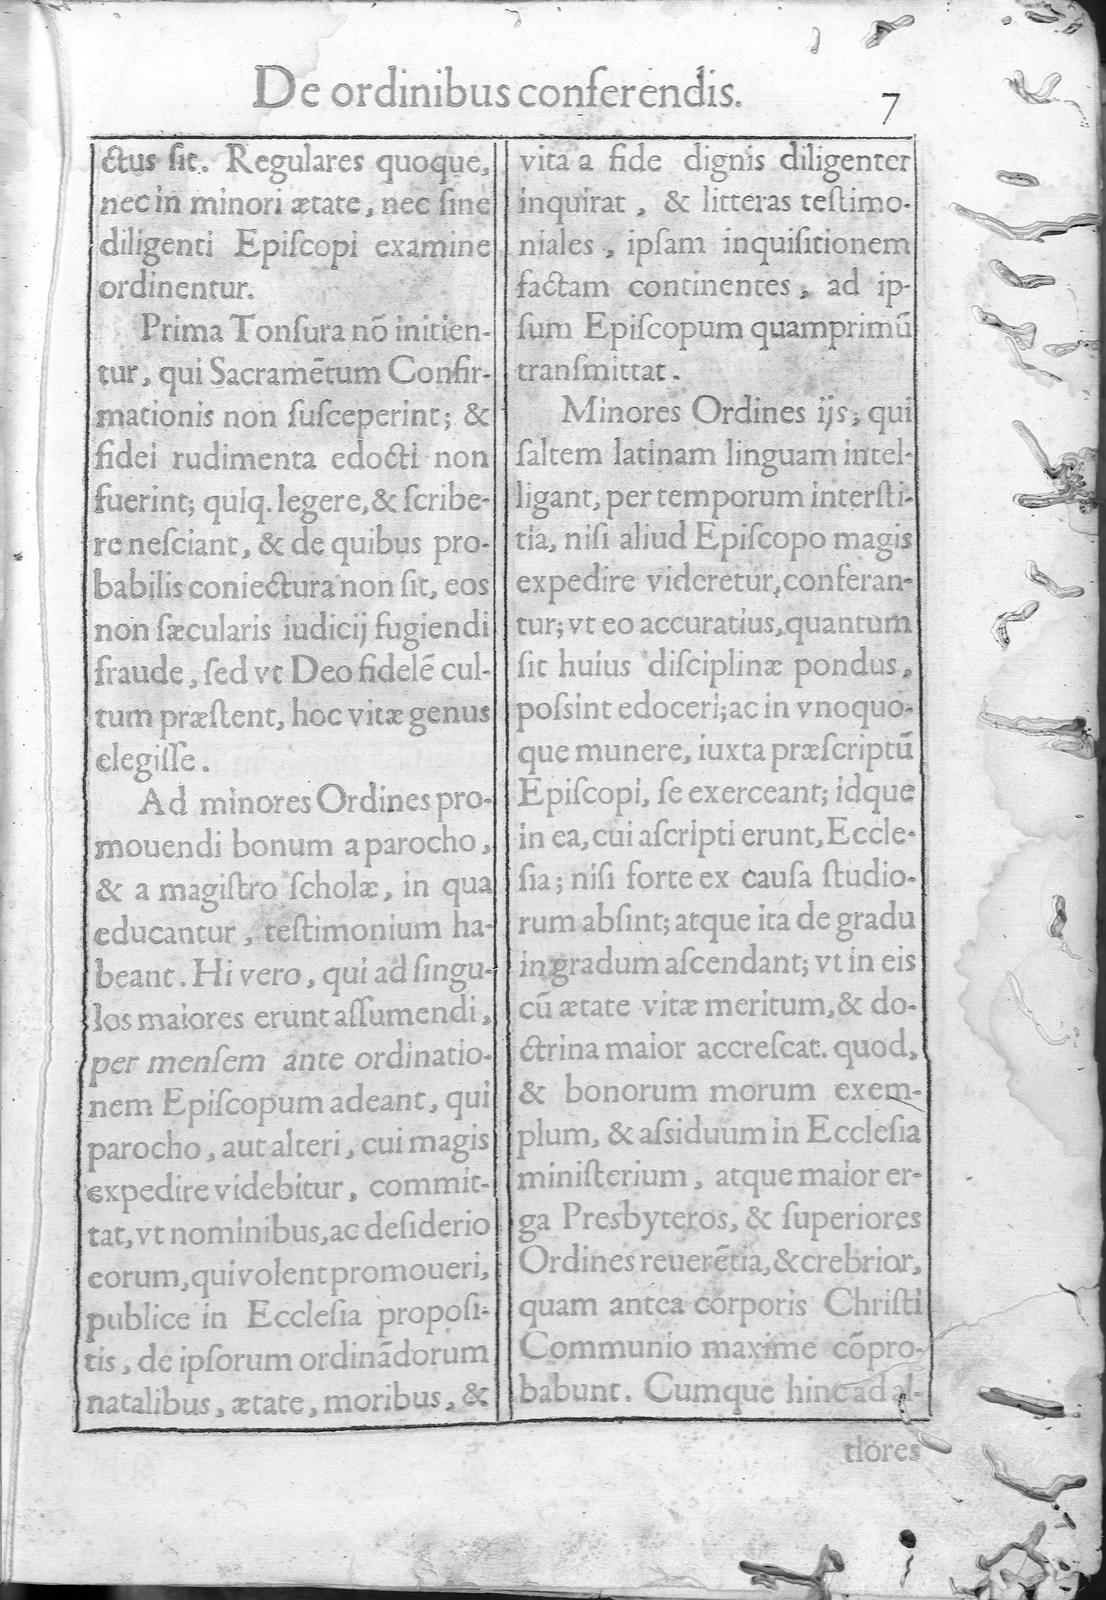 De ordinibus conferendis.
7
ctus ſit. Regulares quoque,
nec in minori ætate, nec ſine
diligenti Epiſcopi examine
ordinentur.
Prima Tonſura nõ initien-
tur, qui Sacramẽtum Confir-
mationis non ſuſceperint; &
fidei rudimenta edocti non
fuerint; quiq. legere, & ſcribe-
re neſciant, & de quibus pro-
babilis coniectura non ſit, eos
non ſæcularis iudicij fugiendi
fraude, ſed vt Deo fidelẽ cul-
tum præſtent, hoc vitæ genus
elegiſſe.
Ad minores Ordines pro-
mouendi bonum a parocho,
& a magiſtro ſcholæ, in qua
educantur, teſtimonium ha-
beant. Hi vero, qui ad ſingu-
los maiores erunt aſſumendi,
per menſem ante ordinatio-
nem Epiſcopum adeant, qui
parocho, aut alteri, cui magis
expedire videbitur, commit-
tat, vt nominibus, ac deſiderio
eorum, qui volent promoueri,
publice in Eccleſia propoſi-
tis, de ipſorum ordinãdorum
natalibus, ætate, moribus, &
vita a fide dignis diligenter
inquirat, & litteras teſtimo-
niales, ipſam inquiſitionem
factam continentes, ad ip-
ſum Epiſcopum quamprimũ
tranſmittat.
Minores Ordines ijs, qui
ſaltem latinam linguam intel-
ligant, per temporum interſti-
tia, niſi aliud Epiſcopo magis
expedire videretur, conferan-
tur; vt eo accuratius, quantum
ſit huius diſciplinæ pondus,
poſsint edoceri; ac in vnoquo-
que munere, iuxta præſcriptũ
Epiſcopi, ſe exerceant; idque
in ea, cui aſcripti erunt, Eccle-
ſia; niſi forte ex cauſa ſtudio-
rum abſint; atque ita de gradu
in gradum aſcendant; vt in eis
cũ ætate vitæ meritum, & do-
ctrina maior accreſcat. quod,
& bonorum morum exem-
plum, & aſsiduum in Eccleſia
miniſterium, atque maior er-
ga Presbyteros, & ſuperiores
Ordines reuerẽtia, & crebrior,
quam antea corporis Chriſti
Communio maxime cõpro-
babunt. Cumque hinc ad al-
tiores